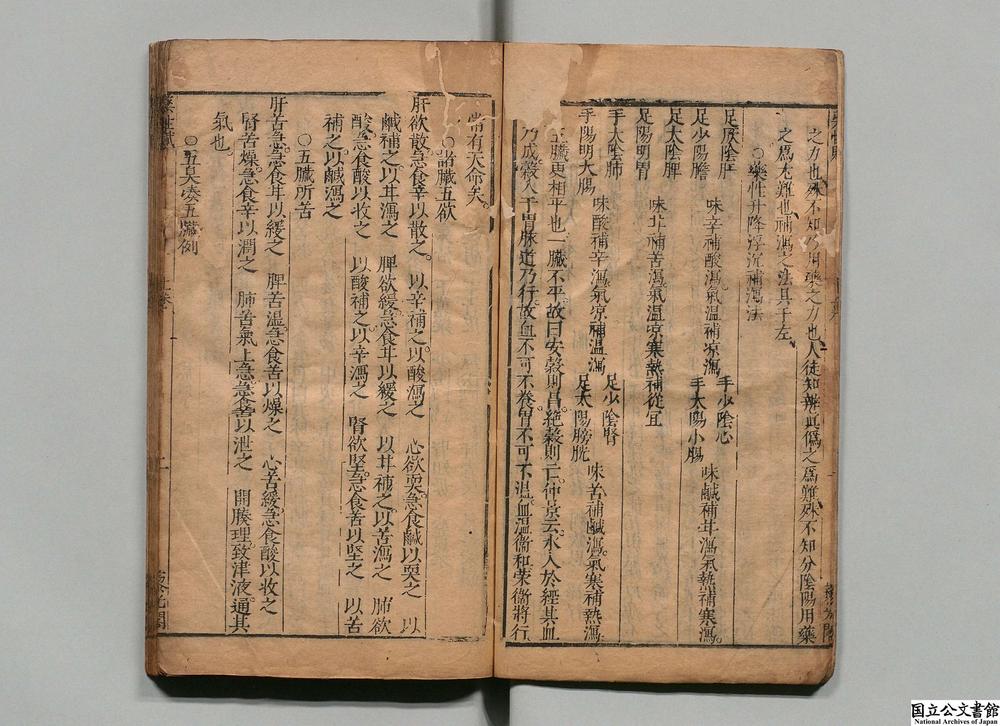 之力也殊不知乃用藥之力也人徒知辨眞僞之爲難殊不知分陰陽用藥
之爲尤難也補瀉之法具于左
○藥性升降浮沉補瀉法
足厥陰肝
足少陽膽
味辛補酸瀉氣温補凉瀉
手少陰心
手太陽小腸
味鹹補甘瀉氣熱補寒瀉
足太陰脾
足陽明胃
味甘補苦瀉氣温凉寒熱補從宜
手太陰肺
手陽明大腸
味酸補辛瀉氣凉補温瀉
足少陰腎
足太陽膀胱
味苦補鹹瀉氣寒補熱瀉
五臓更相平也一臓不平故曰安穀則昌絶穀則亡仲京云水入於經其血
乃成穀入于胃脉道乃行故血不可不養胃不可不温血温衞和荣衞將行
常有天命矣
○諸臓五欲
肝欲散急食辛以散之 以辛補之以酸瀉之 心欲耎急食鹹以耎之 以
鹹補之以甘瀉之 脾欲緩急食甘以緩之 以甘補之以苦瀉之 肺欲
酸急食酸以收之 以酸補之以辛瀉之 腎欲堅急食苦以堅之 以苦
補之以鹹瀉之
○五臓所苦
肝苦急急食甘以緩之 脾苦温急食苦以燥之 心苦緩急食酸以收之
腎苦燥急食辛以潤之 肺苦氣上急急食苦以泄之 開腠理致津液通其
氣也
○五臭湊五臓例
藥性賦
上卷
二
国立公文書館
National Archives of Japan